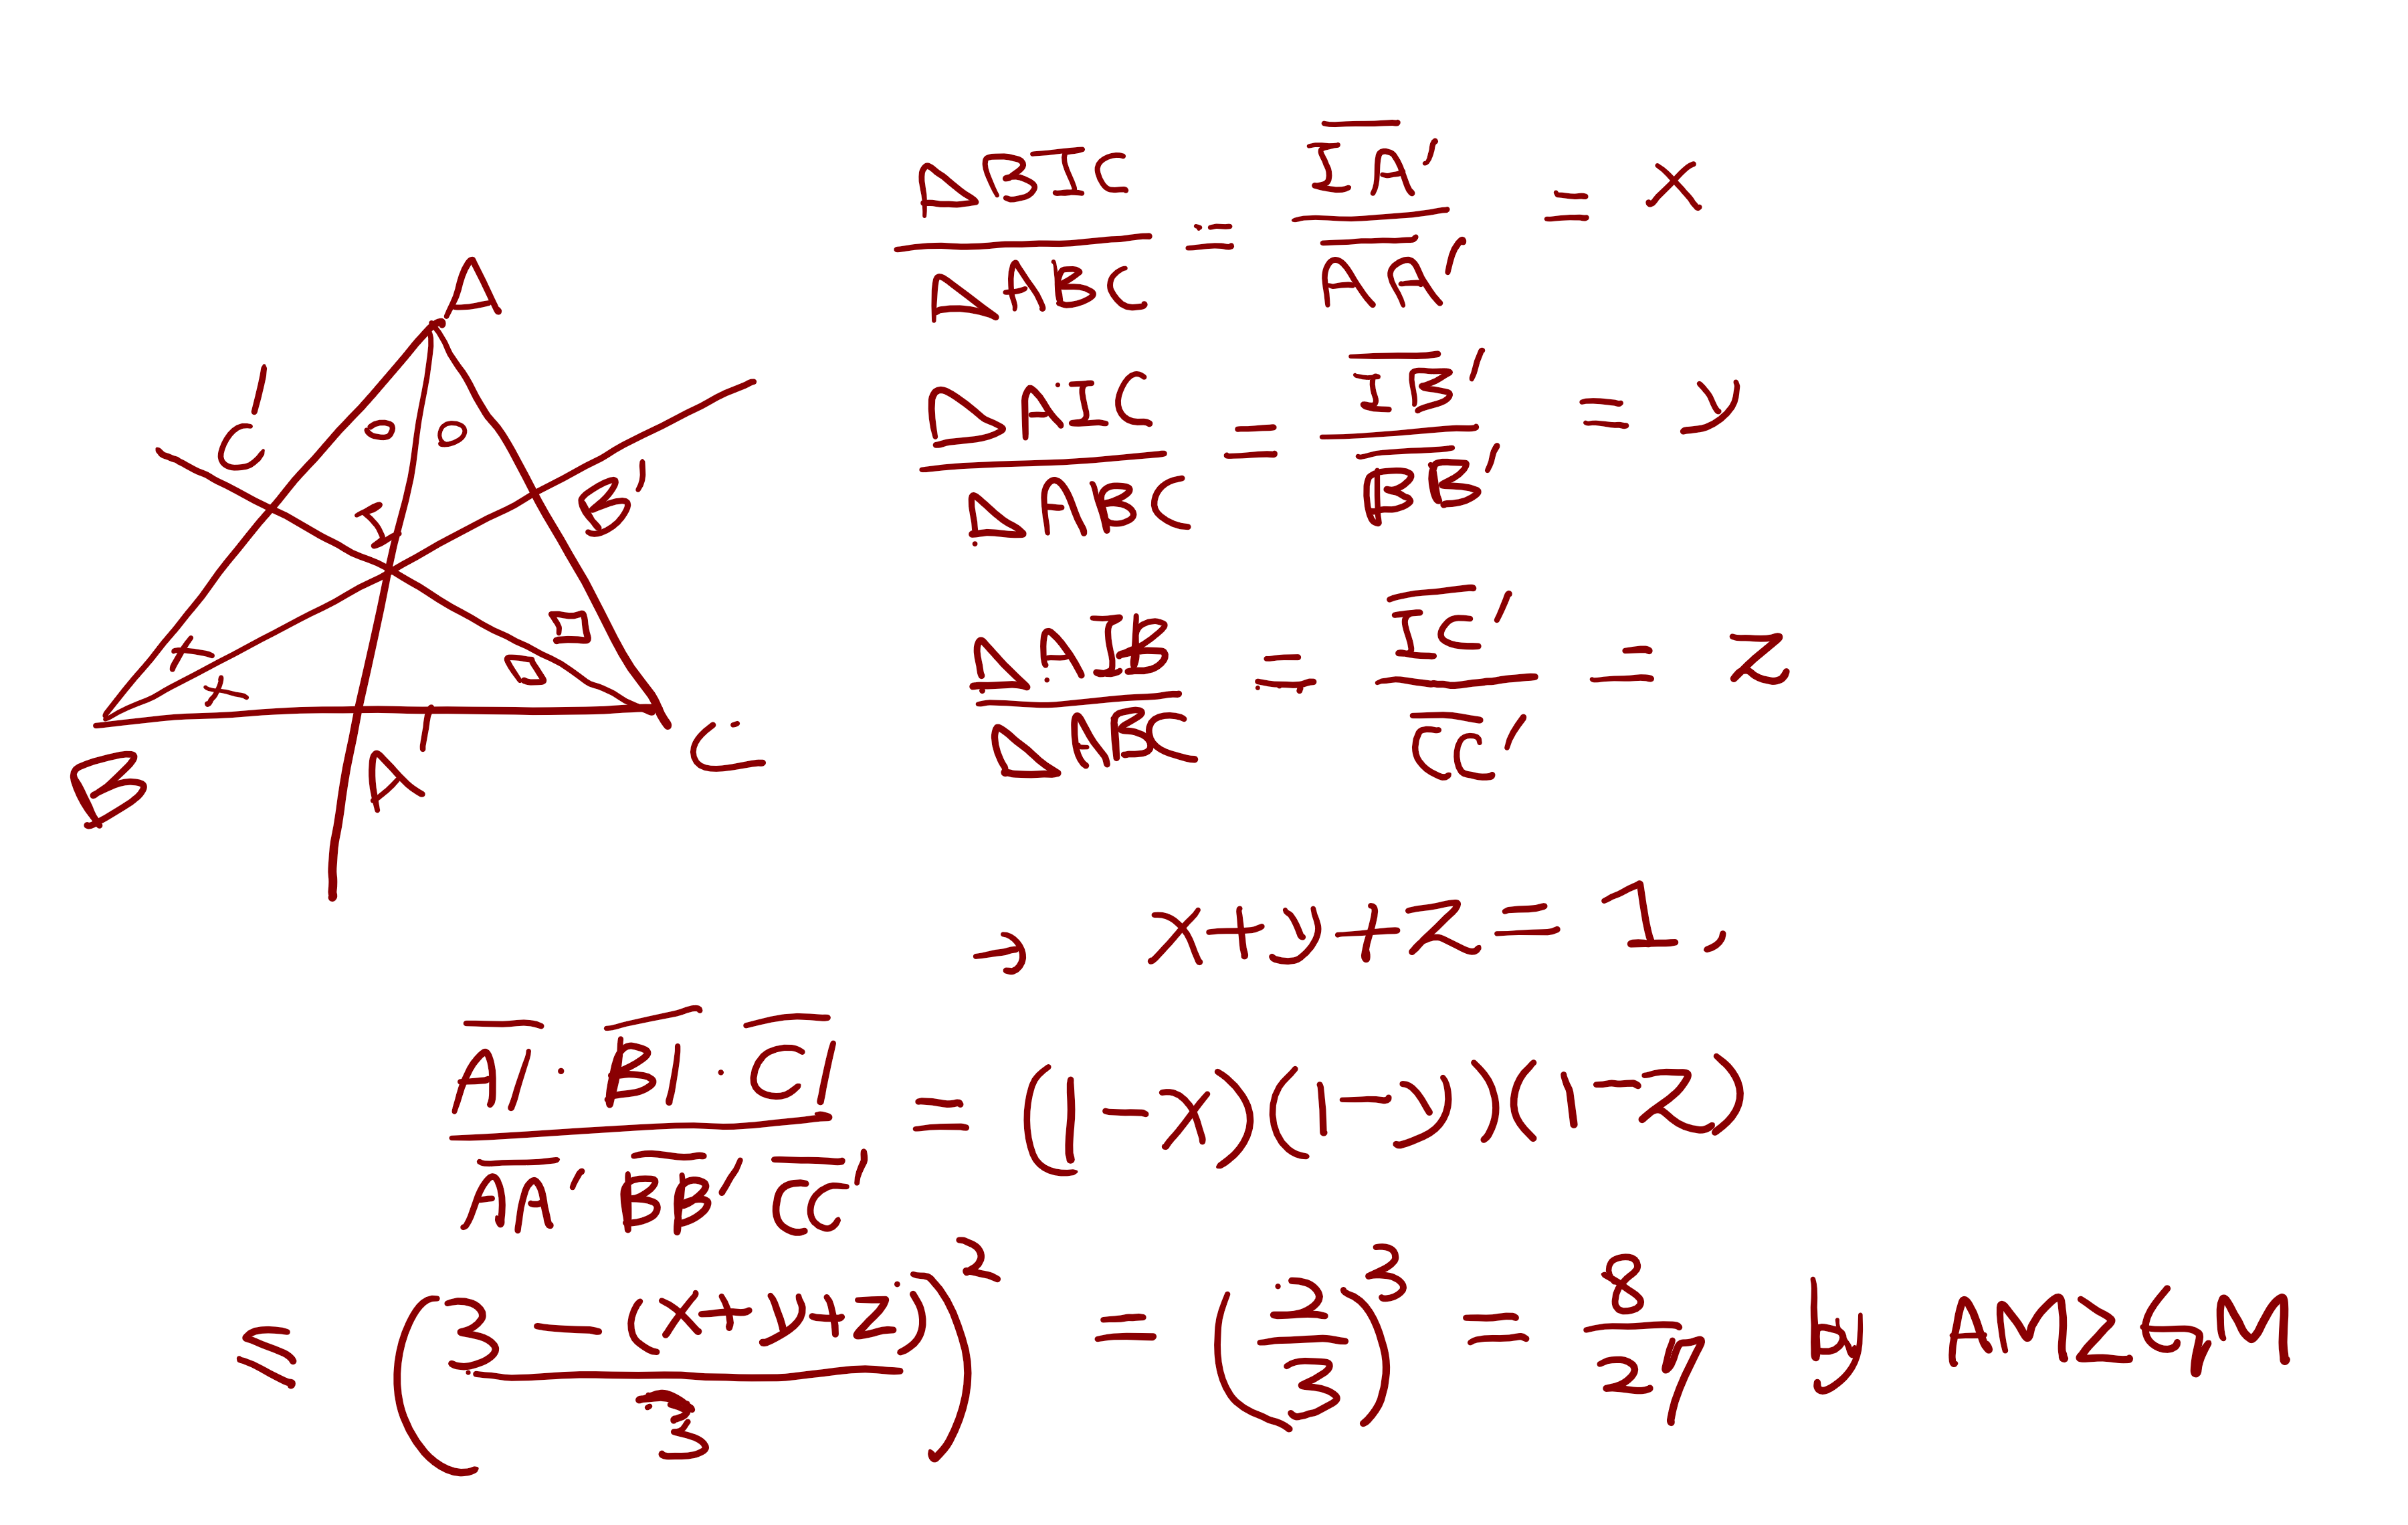 A
C'
I
B'
B
A'
C
ΔBIC / ΔABC = IA' / AA' = x
ΔAIC / ΔABC = IB' / BB' = y
ΔAIB / ΔABC = IC' / CC' = z
→ x+y+z = 1,
AI · BI · CI / AA' BB' CC' = (1-x)(1-y)(1-z)
≤ ((3-(x+y+z))/3)^2 = (2/3)^3 = 8/27 by AM≥GM